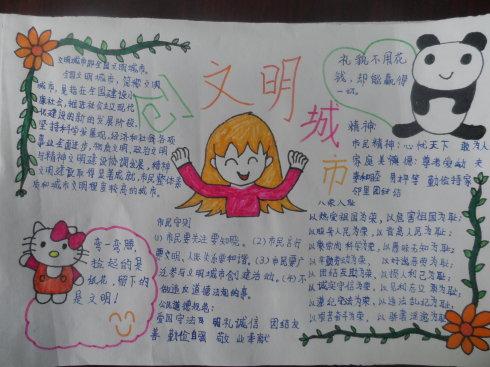 创
文明
城
市
文明城市即全国文明城市。
全国文明城市，简称文明
城市，是指在全国建设小
康社会，推进社会主义现代
化建设的新的发展阶段，
坚持科学发展观，经济和社会各项
事业全面进步，物质文明、政治文明
与精神文明建设协调发展，精神
文明建设取得显著成就，市民整体素
质和城市文明程度较高的城市。
礼貌不用花
钱，却能赢得
一切。
精神：
市民精神：心忧天下 敢为人
家庭美德：尊老爱幼 夫
男女平等 勤俭持家
邻里团结
弯一弯腰，
捡起的是
纸花，留下的
是文明！
市民守则
(1) 市民要关注 要知晓。(2) 市民言行
要文明，人际关系要和谐。(3) 市民要广
泛参与文明城市创建活动。(4) 不
做违反道德法规的事。
公民道德规范：
爱国守法 明礼诚信 团结友
善 勤俭自强 敬业奉献
八荣八耻
以热爱祖国为荣，以危害祖国为耻；
以服务人民为荣，以背离人民为耻；
以崇尚科学为荣，以愚昧无知为耻；
以辛勤劳动为荣，以好逸恶劳为耻；
以团结互助为荣，以损人利己为耻；
以诚实守信为荣，以见利忘义为耻；
以遵纪守法为荣，以违法乱纪为耻；
以艰苦奋斗为荣，以骄奢淫逸为耻。